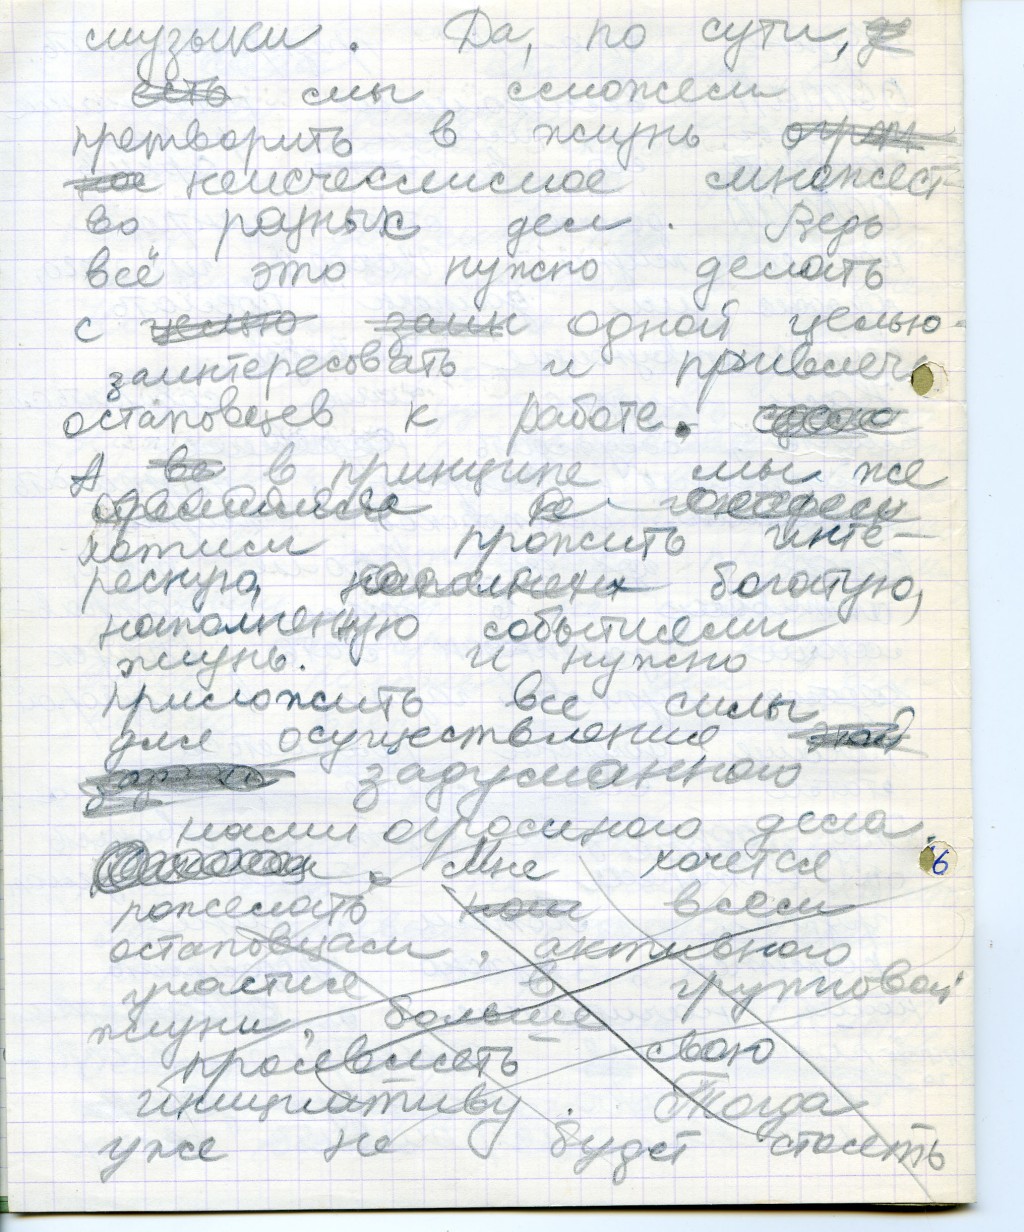 музыки. Да, по сути,
есть мы сможем
претворить в жизнь огром
ное неисчеслимое множест-
во разных дел. Ведь
всё это нужно делать
с целью заин одной целью-
заинтересовать и привлечь
остаповцев к работе.
А в принципе мы же
хотим прожить инте-
ресную, наполнен богатую,
наполненную событиями
жизнь. И нужно
приложить все силы
для осуществления этой
задуманного
нами огромного дела.
Мне хочется
пожелать всем
остаповцам, активного
участие в групповой
жизни, больше
проевлеть свою
инициативу. Тогда
уже не будет стоеть
6